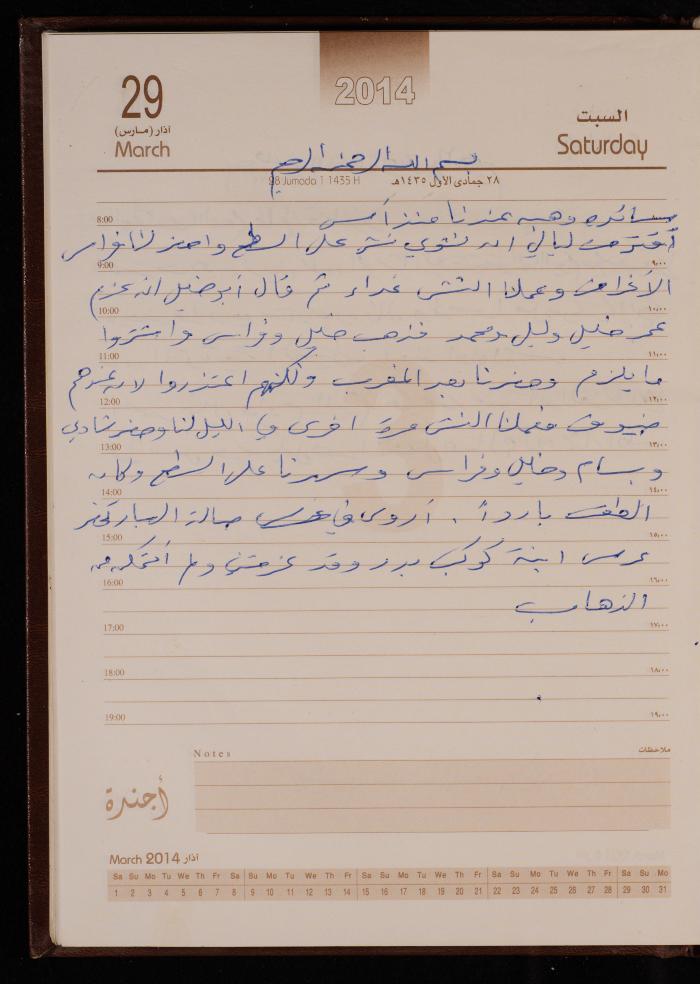 2014
29
آذار (مارس)
March
السبت
Saturday
بسم الله الرحمن الرحيم
28 Jumada 1 1435 H
٢٨ جمادى الأول ١٤٣٥هـ
سائده وهبه عندنا منذ أمس
8:00
أقترحت ليالي أن نشوي نتش على السطح واحضر لنا فراس
9:00 ٩،٠٠
الأغراض وعملنا النتش غداء ثم قال أبو خليل انه عزم
10:00 ١٠،٠٠
عمر خليل وليل ومحمد فذهب خليل وفراس واشتروا
11:00 ١١،٠٠
ما يلزم وحضرنا بعد المغرب ولكنهم اعتذروا لان عندهم
12:00 ١٢،٠٠
ضيوف فعملنا النتش مرة اخرى في الليل لنا وحضر شادي
13:00 ١٣،٠٠
وبسام وخليل وفراس وسهرنا على السطح وكان
14:00 ١٤،٠٠
الطقس بارداً . أروى في صالة
15:00 ١٥،٠٠
عرس ابنة كوكب بدر وقد عزمتني ولم أتمكن من
16:00 ١٦،٠٠
الذهاب
17:00 ١٧،٠٠
18:00 ١٨،٠٠
19:00 ١٩،٠٠
Notes ملاحظات
أجندة
March 2014 آذار
Sa Su Mo Tu We Th Fr Sa Su Mo Tu We Th Fr Sa Su Mo Tu We Th Fr Sa Su Mo Tu We Th Fr Sa Su Mo
1 2 3 4 5 6 7 8 9 10 11 12 13 14 15 16 17 18 19 20 21 22 23 24 25 26 27 28 29 30 31